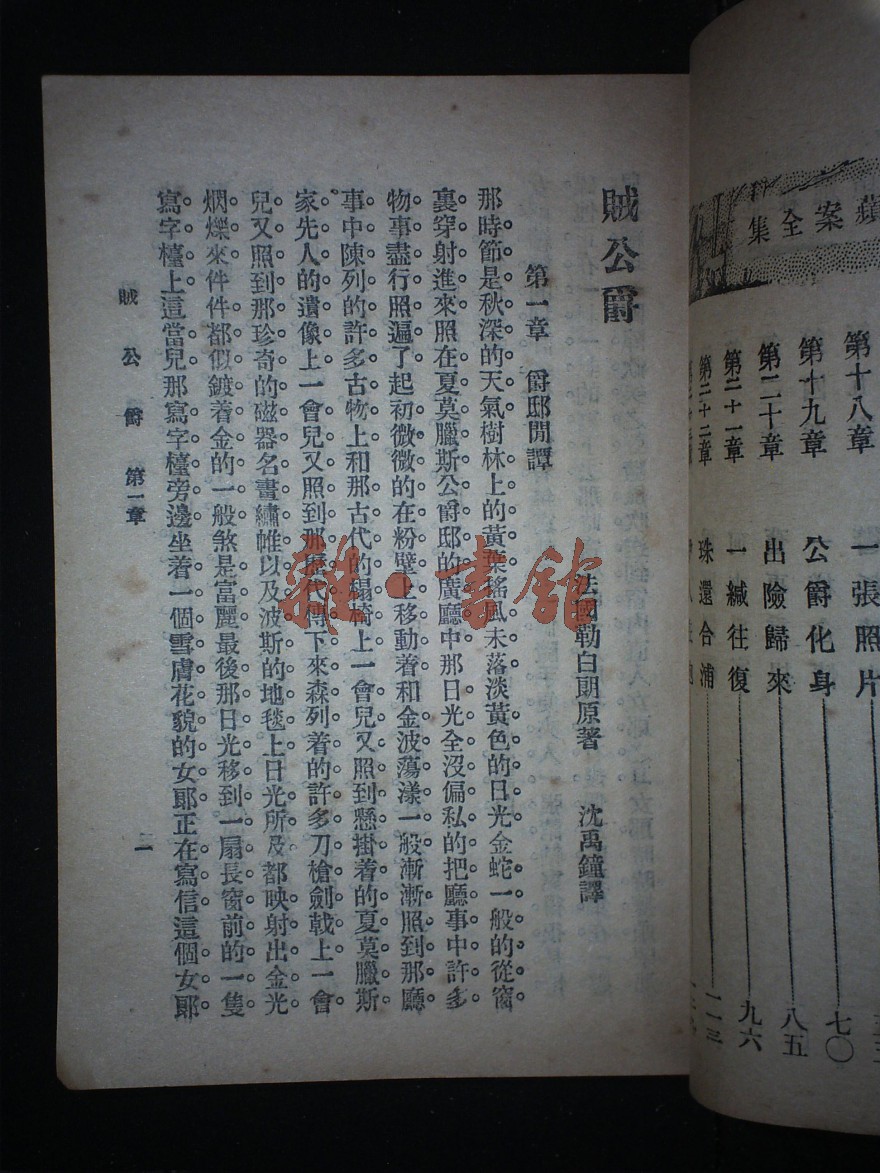 蘋案全集
第十八章 一張照片
第十九章 公爵化身 七〇
第二十章 出險歸來 八五
第二十一章 一緘往復 九六
第二十二章 珠還合浦
賊公爵
法國勒白朗原著 沈禹鐘譯
第一章 爵邸閒譚
那時節是秋深的天氣樹林上的黃葉搖風未落淡黃色的日光金蛇一般的從窗
裏穿射進來照在夏莫臘斯公爵邸的廣廳中那日光全沒偏私的把廳事中許多
物事盡行照遍了起初微微的在粉壁上移動着和金波蕩漾一般漸漸照到那廳
事中陳列的許多古物上和那古代的榻椅上一會兒又照到懸掛着的夏莫臘斯
家先人的遺像上一會兒又照到那歷代傳下來森列着的許多刀槍劍戟上一會
兒又照到那珍奇的磁器名畫繡帷以及波斯的地毯上日光所及都映射出金光
烱爍來件件都似鍍着金的一般煞是富麗最後那日光移到一扇長窗前的一隻
寫字檯上這當兒那寫字檯旁邊坐着一個雪膚花貌的女郎正在寫信這個女郎
賊公爵 第一章
雜·書館